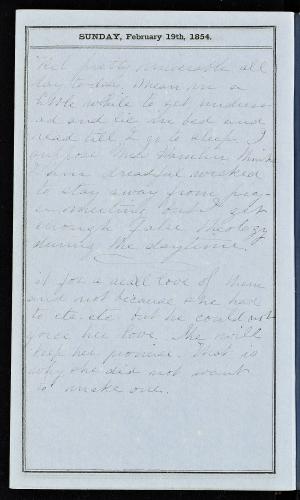 SUNDAY, February 19th, 1854.
Felt pretty miserable all
day to-day. Mean in a
little while to get undress-
ed and lie in bed and
read till I go to sleep. I
suppose Mrs. Hamlin thinks
I am dreadful wicked
to stay away from pray-
er meeting but I get
enough false theology
during the daytime.
it for a real love of them
and not because she have
to etc. etc. but he could not
give her love. She will
keep her promise. That is
why she did not want
to make one.